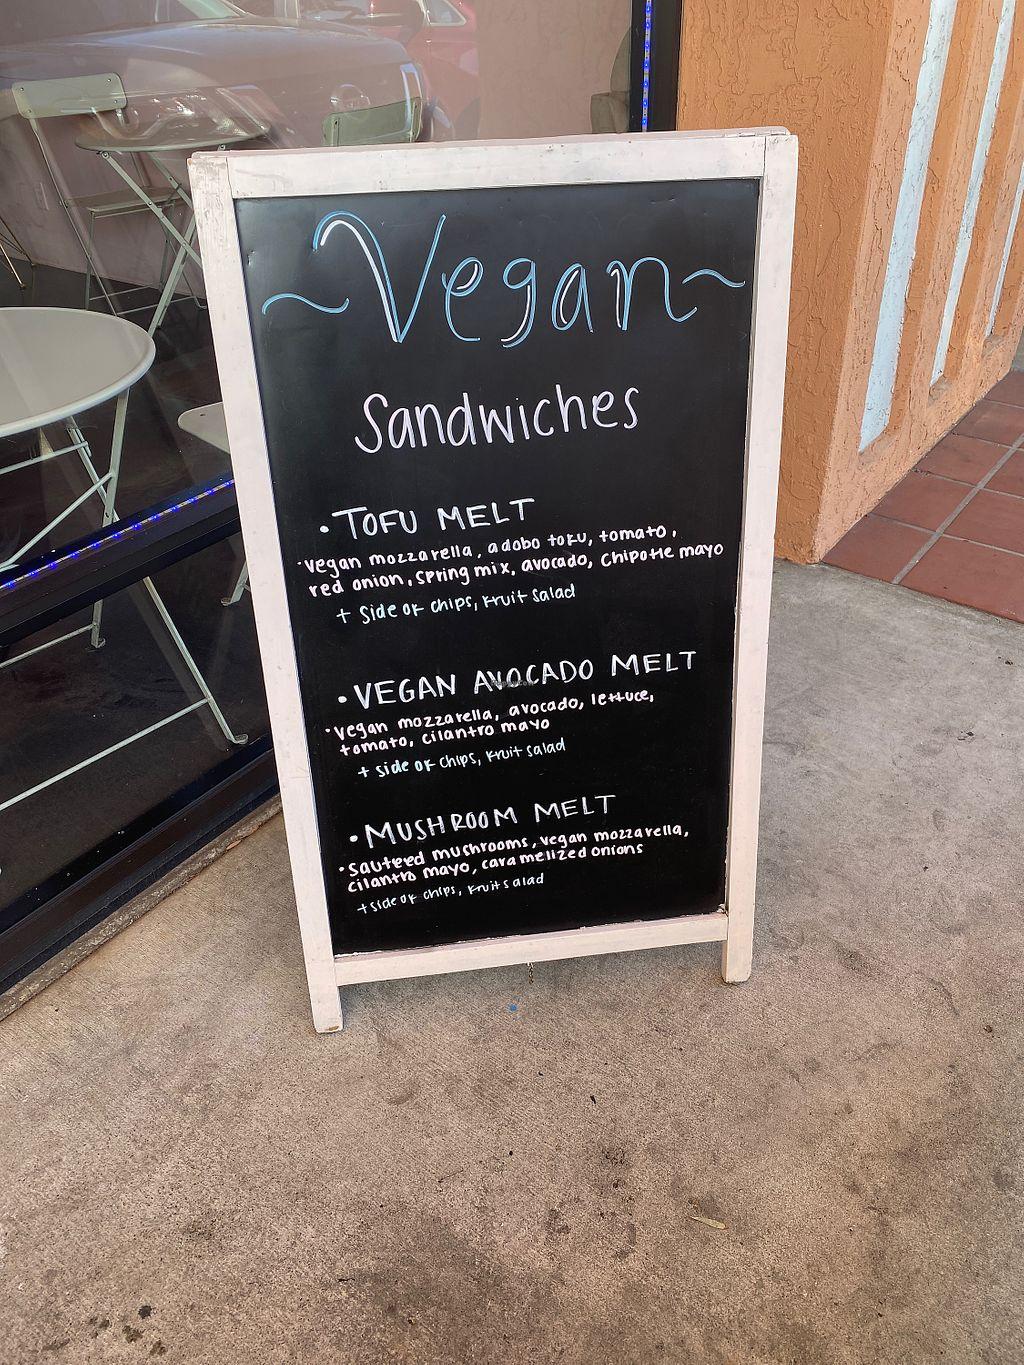 ~Vegan~
Sandwiches
• TOFU MELT
• vegan mozzarella, adobo tofu, tomato,
red onion, spring mix, avocado, chipotle mayo
+ side of chips, fruit salad
• VEGAN AVOCADO MELT
• vegan mozzarella, avocado, lettuce,
tomato, cilantro mayo
+ side of chips, fruit salad
• MUSHROOM MELT
• sauteed mushrooms, vegan mozzarella,
cilantro mayo, caramelized onions
+ side of chips, fruit salad